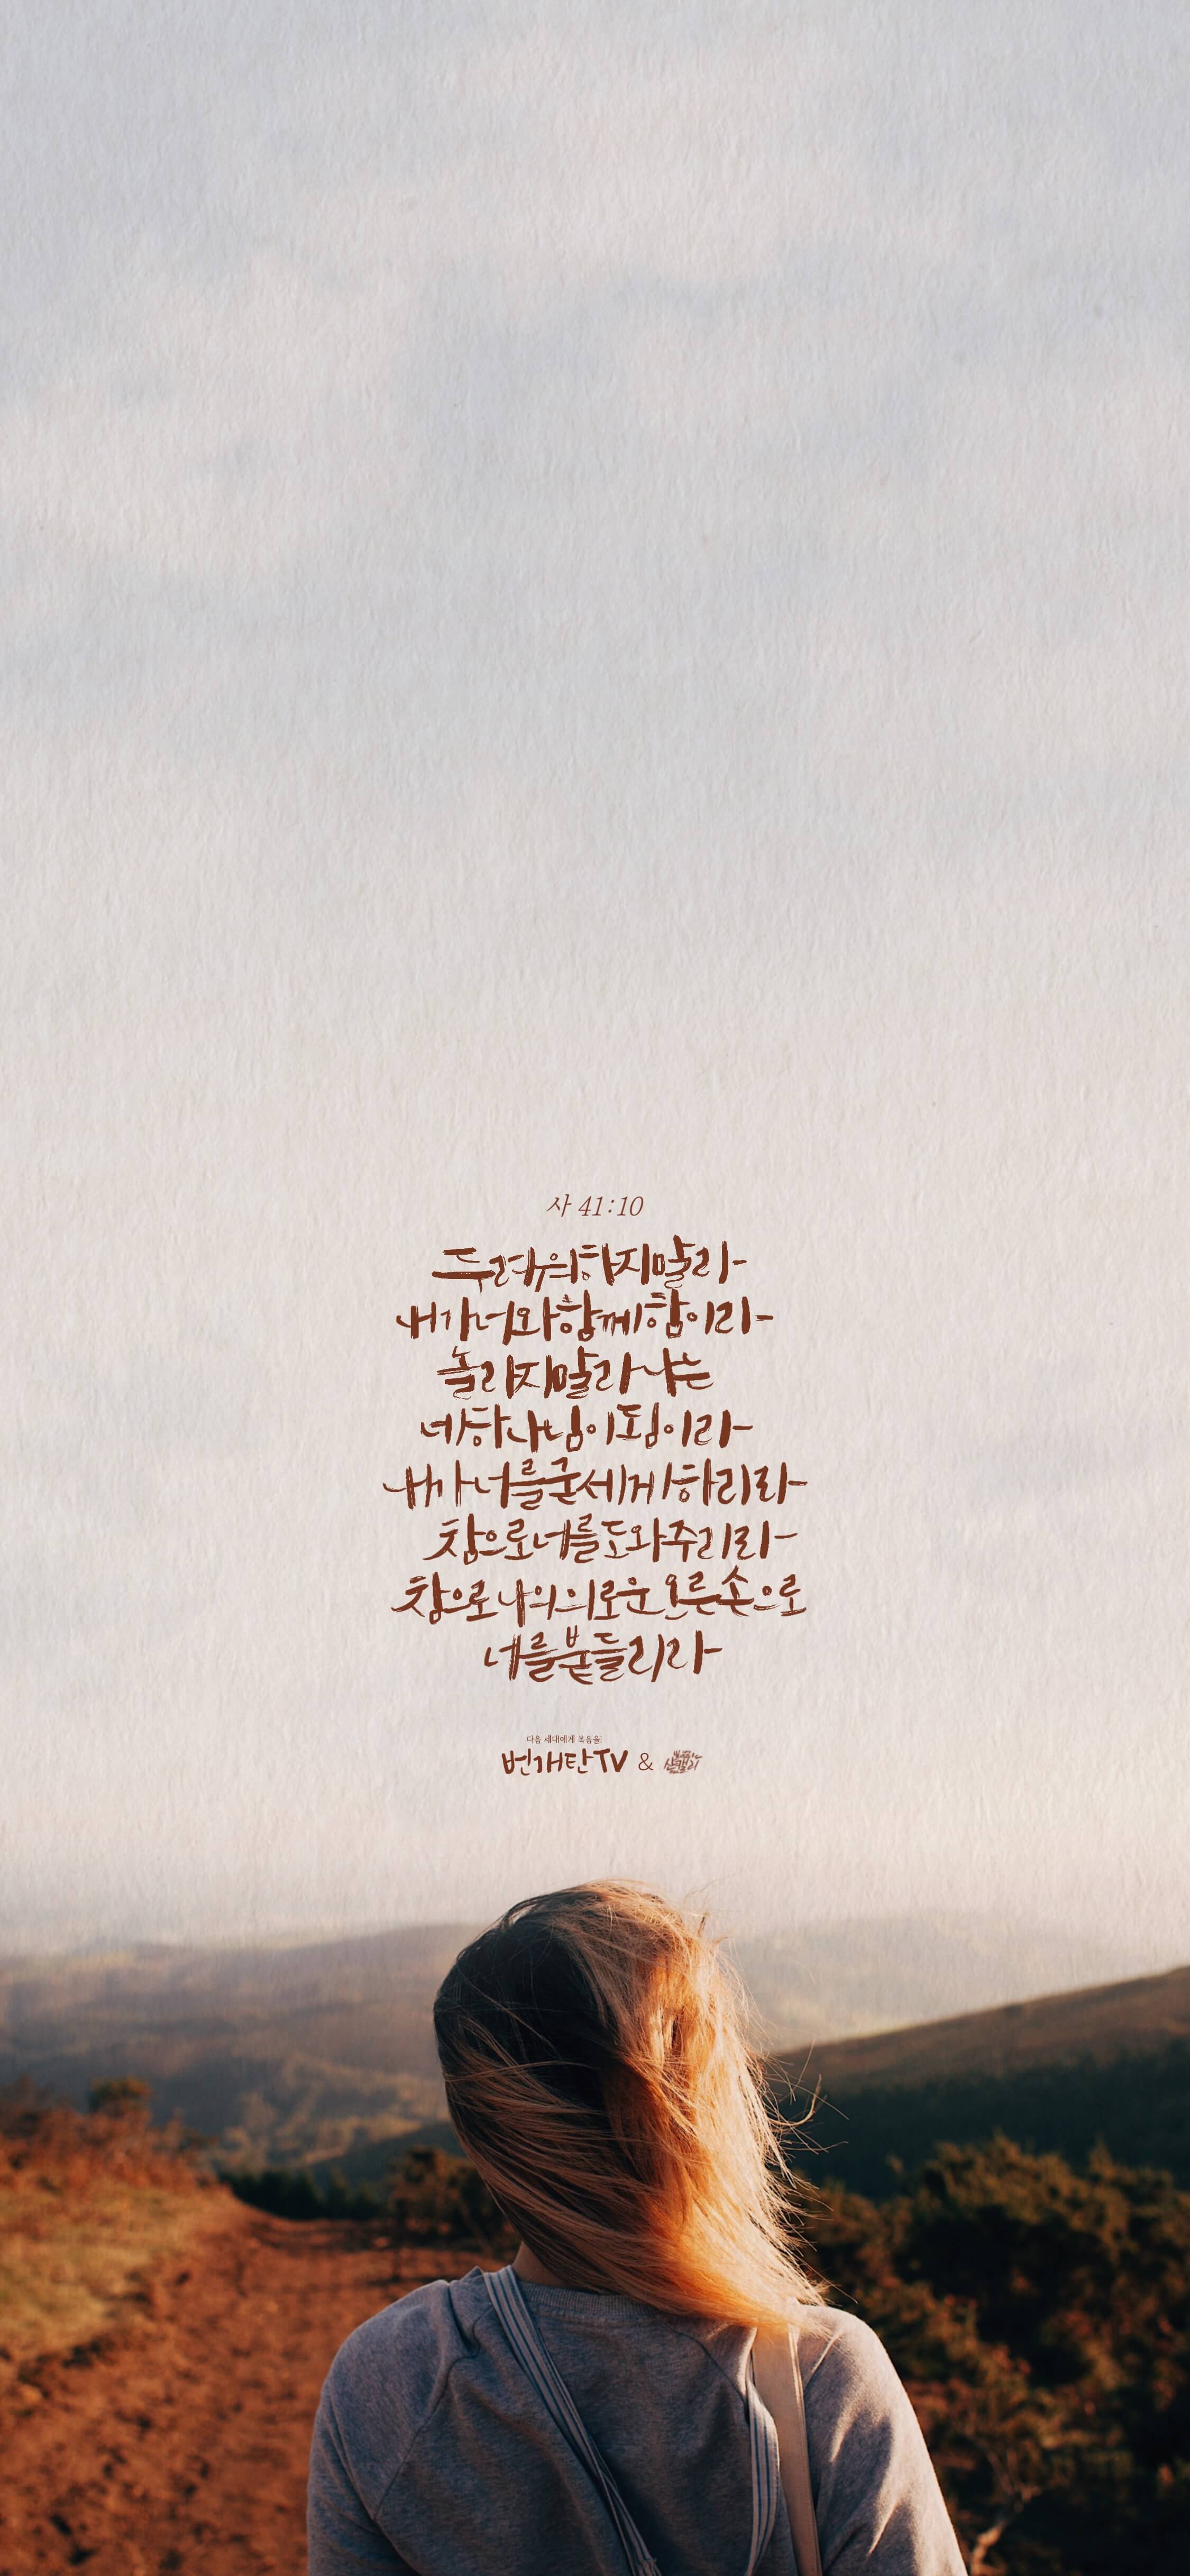 사 41:10
두려워하지말라
내가너와함께함이라
놀라지말라나는
네하나님이됨이라
내가너를굳세게하리라
참으로너를도와주리라
참으로나의의로운오른손으로
너를붙들리라
다음 세대에게 복음을!
번개탄TV &